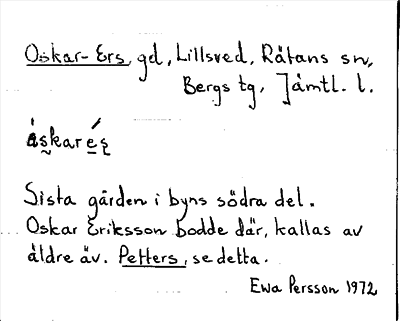 Oskar-Ers, gd, Lillsved, Råtans sn,
Bergs tg, Jämtl. l.
åskare´s
Sista gården i byns södra del.
Oskar Eriksson bodde där, kallas av
äldre äv. Petters, se detta.
Ewa Persson 1972